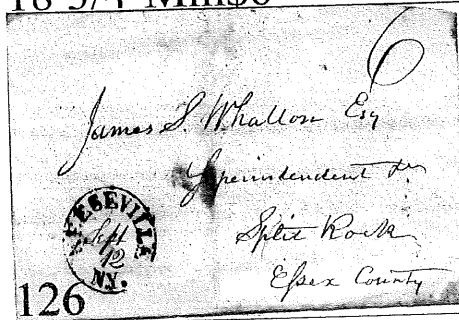 18 3/4
6
James S. Whallon Esq
Superintendent
Split Rock
Essex County
KEESEVILLE
Sept
12
N.Y.
126